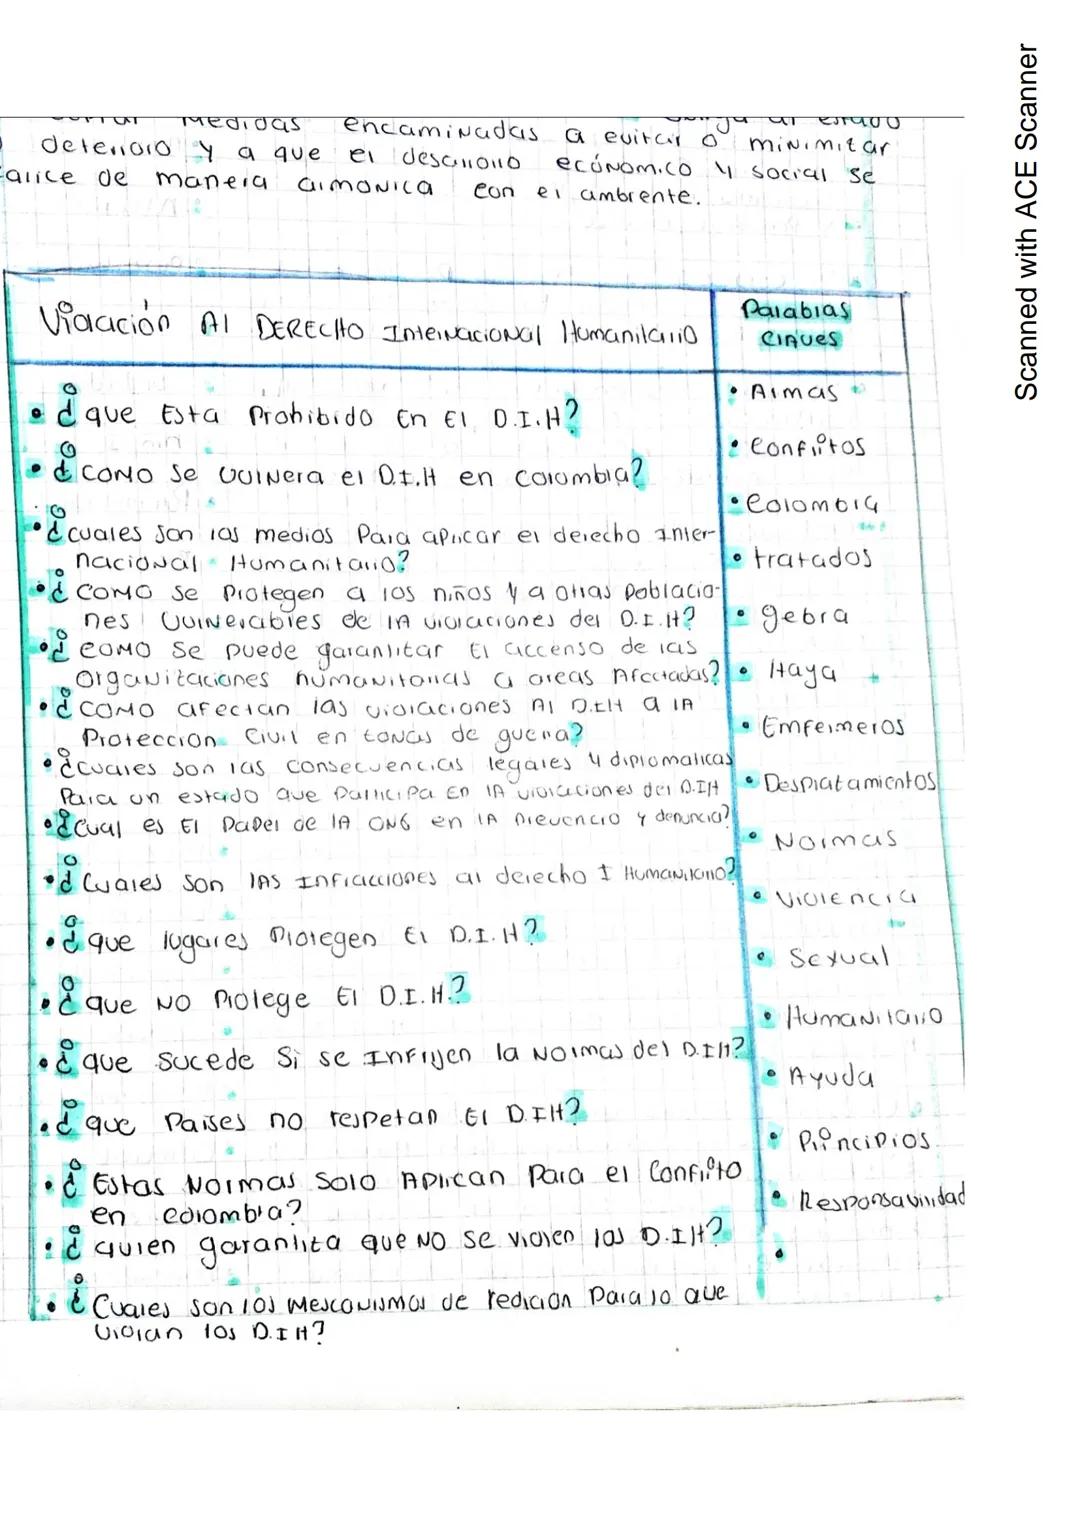 Medidas encaminadas a evitar o minimizar
deterioro y a que el desarrollo ecónomico y social se
de manera armonica con el ambiente.
Violación Al DERECHO Internacional Humanitario
Palabras
Claves
• ¿que Esta Prohibido En El D.I.H?
• ¿COMO Se vulnera el D.I.H en colombia?
• ¿cuales son los medios Para aplicar el derecho Inter-
nacional Humanitario?
• ¿COMO se Protegen a los niños y a otras Poblacio-
nes Vulnerables de lA violaciones del D.I.H?
• ¿COMO Se puede garantizar El accenso de las
Organizaciones humanitarias a areas Afectadas?
• ¿COMO afectan las violaciones Al D.I.H a lA
Protección Civil en zonas de guerra?
• ¿Cuales son las consecuencias legales y diplomaticas
Para un estado que Participa En lA violaciones del D.IH
• ¿Cual es El Papel de lA ONG en lA Prevencio y denuncia?
• ¿Cuales son lAs Infracciones al derecho I Humanitario?
• ¿que lugares Protegen El D.I.H?
• ¿que NO Protege El D.I.H.?
• ¿que Sucede Si se Infrijen la Normas del D.IH?
• ¿que Paises no respetan El D.IH?
• ¿Estas Normas Solo Aplican Para el Conflito
en colombia?
• ¿quien garantiza que NO se violen los D.IH?
• ¿Cuales son los Mesconismos de redición Para lo que
violan los D.IH?
• Armas
• Conflitos
• Colombia
• tratados
• gebra
• Haya
• Emfermeros
• Desplatamientos
• Normas
• Violencia
• Sexual
• Humanitario
• Ayuda
• Principios
• Responsavilidad
•
Scanned with ACE Scanner